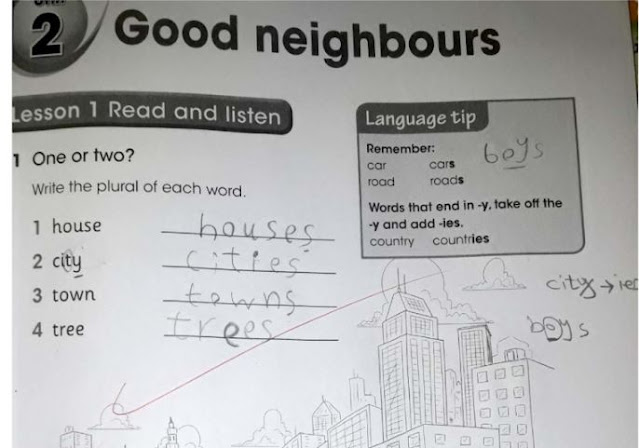 Unit
2
Good neighbours
Lesson 1 Read and listen
1 One or two?
Write the plural of each word.
1 house houses
2 city cities
3 town towns
4 tree trees
Language tip
Remember:
car cars
road roads
boys
Words that end in -y, take off the
-y and add -ies.
country countries
city→ies
boys